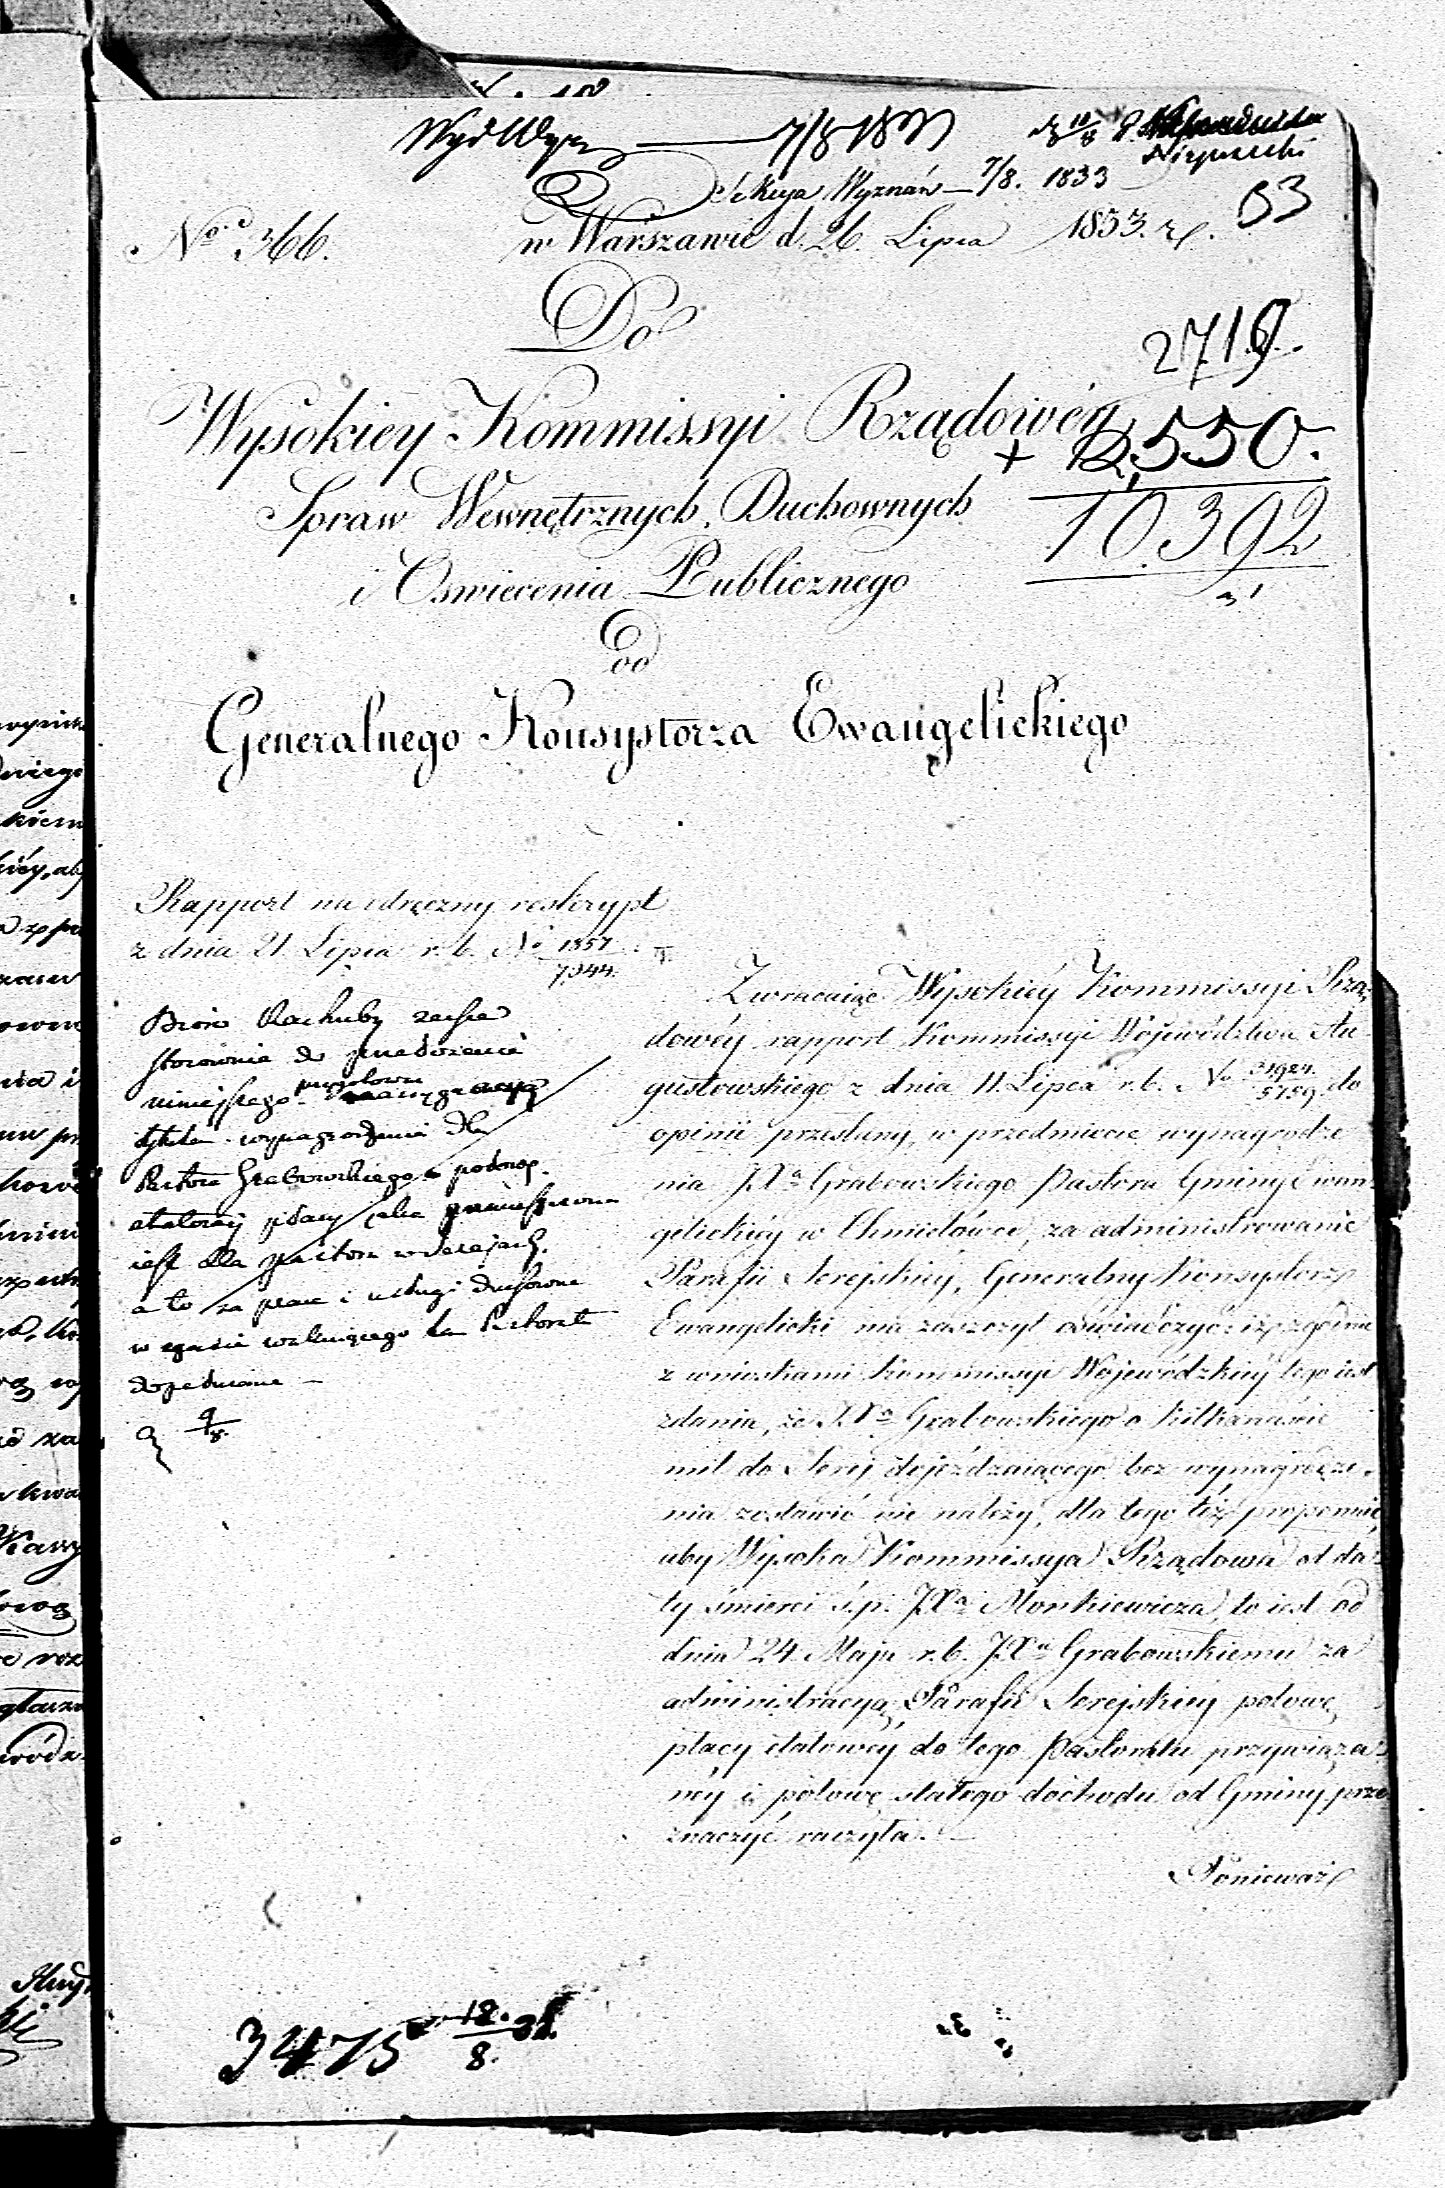 7/8 1833
Sekcya Wyznań 7/8. 1833
83
No. 366. w Warszawie d. 26. Lipca 1833. r.
Do
2719.
Wysokiey Kommissyi Rządowéy
+ 12,550.
Spraw Wewnętrznych, Duchownych
10.392
i Oswiecenia Publicznego
Od
Generalnego Konsystorza Ewangelickiego
Rapport na odręczny reskrypt
z dnia 21. Lipca r. b. No 1857
7,044.
Bióro Rachuby zechce
stosownie do
niniejszego
tytułem wynagrodzenia dla
Pastora Grabowskiego
etatowey płacy jaka
iest dla Pastora w Serejach.
a to za prace i usługi duchowne
w czasie wakuiącego tam Pastoratu
dopełniane —
9/8.
Zwracaiąc Wysokiéy Kommissyi Rzą-
dowéy rapport Kommissyi Województwa Au-
gustowskiego z dnia 11. Lipca r. b. No 31924./5159. do
opinii przesłany, w przedmiocie wynagrodze-
nia JXa Grabowskiego Pastora Gminy Ewan-
gelickiéy w Chmielówce, za administrowanie
Parafii Serejskiéy, Generalny Konsystorz
Ewangelicki ma zaszczyt oświadczyć: iż zgodnie
z wnioskami Kommissyi Wojewódzkiéy tego iest
zdania, że JXa Grabowskiego o kilkanaście
mil do Serej dojeżdzaiącego bez wynagrodze-
nia zostawić nie należy, dla tego téż proponuie,
aby Wysoka Kommissya Rządowa od da-
ty śmierci ś. p. JXa Monkiewicza, to iest od
dnia 24. Maja r. b. JXu Grabowskiemu za
administracyą Parafii Serejskiéy połowę
płacy etatowéy do tego Pastoratu przywiąza-
néy i połowę stałego dochodu od Gminy prze-
znaczyć raczyła. —
Ponieważ
3475 12./8. 33.